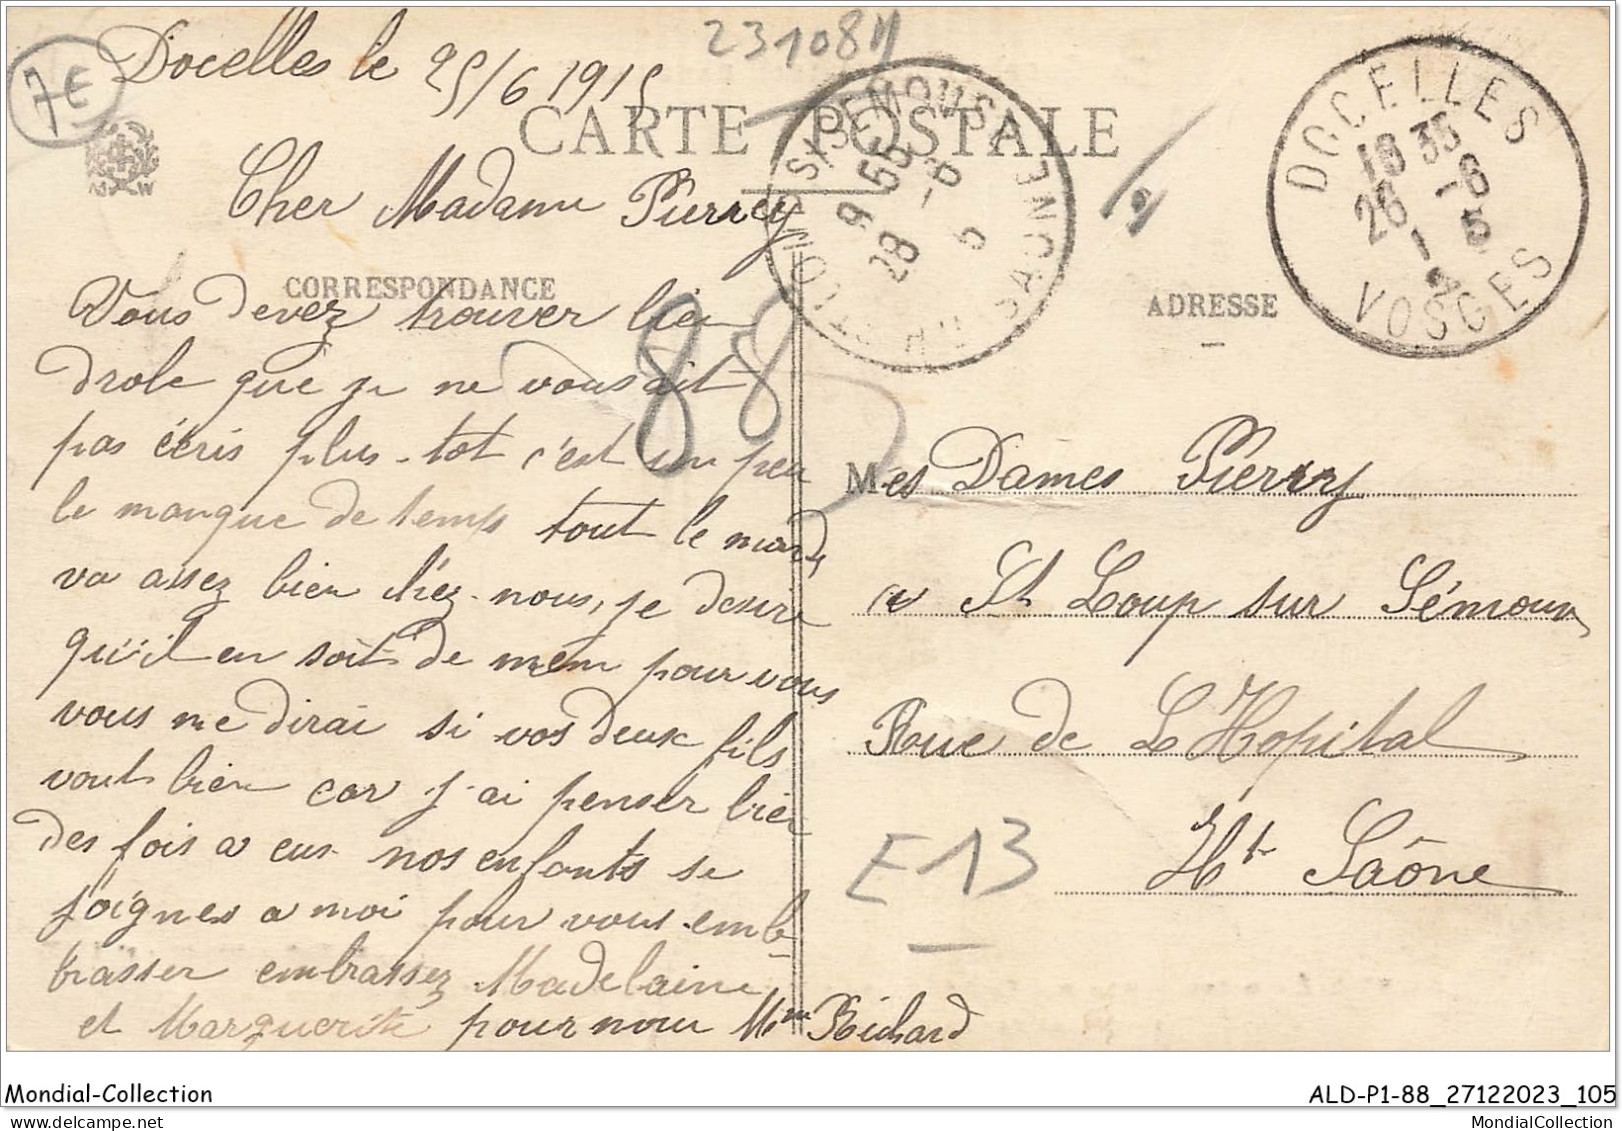 231084
7E
Docelles le 25/6 1915
CARTE POSTALE
DOCELLES
18 35
26 -6
15
VOSGES
9 55
28 -6
5
Hte SAONE
Cher Madame Pierrey
CORRESPONDANCE
ADRESSE
Vous devez trouver bien
drole que je ne vous ait
pas écris plus-tot c'est un peu
le manque de temps tout le monde
va assez bien chez-nous, je desire
qu'il en soit de mem pour vous
vous me dirai si vos deux fils
vont bien car j'ai penser bien
des fois a eus nos enfants se
joignes a moi pour vous emb-
brasser embrassez Madelaine
et Marguerite pour nous Mme Richard
88
Mes Dames Pierrey
a St Loup sur Sémouse
Rue de L'Hopital
Hte Saône
E13
Mondial-Collection
ALD-P1-88_27122023_105
MondialCollection